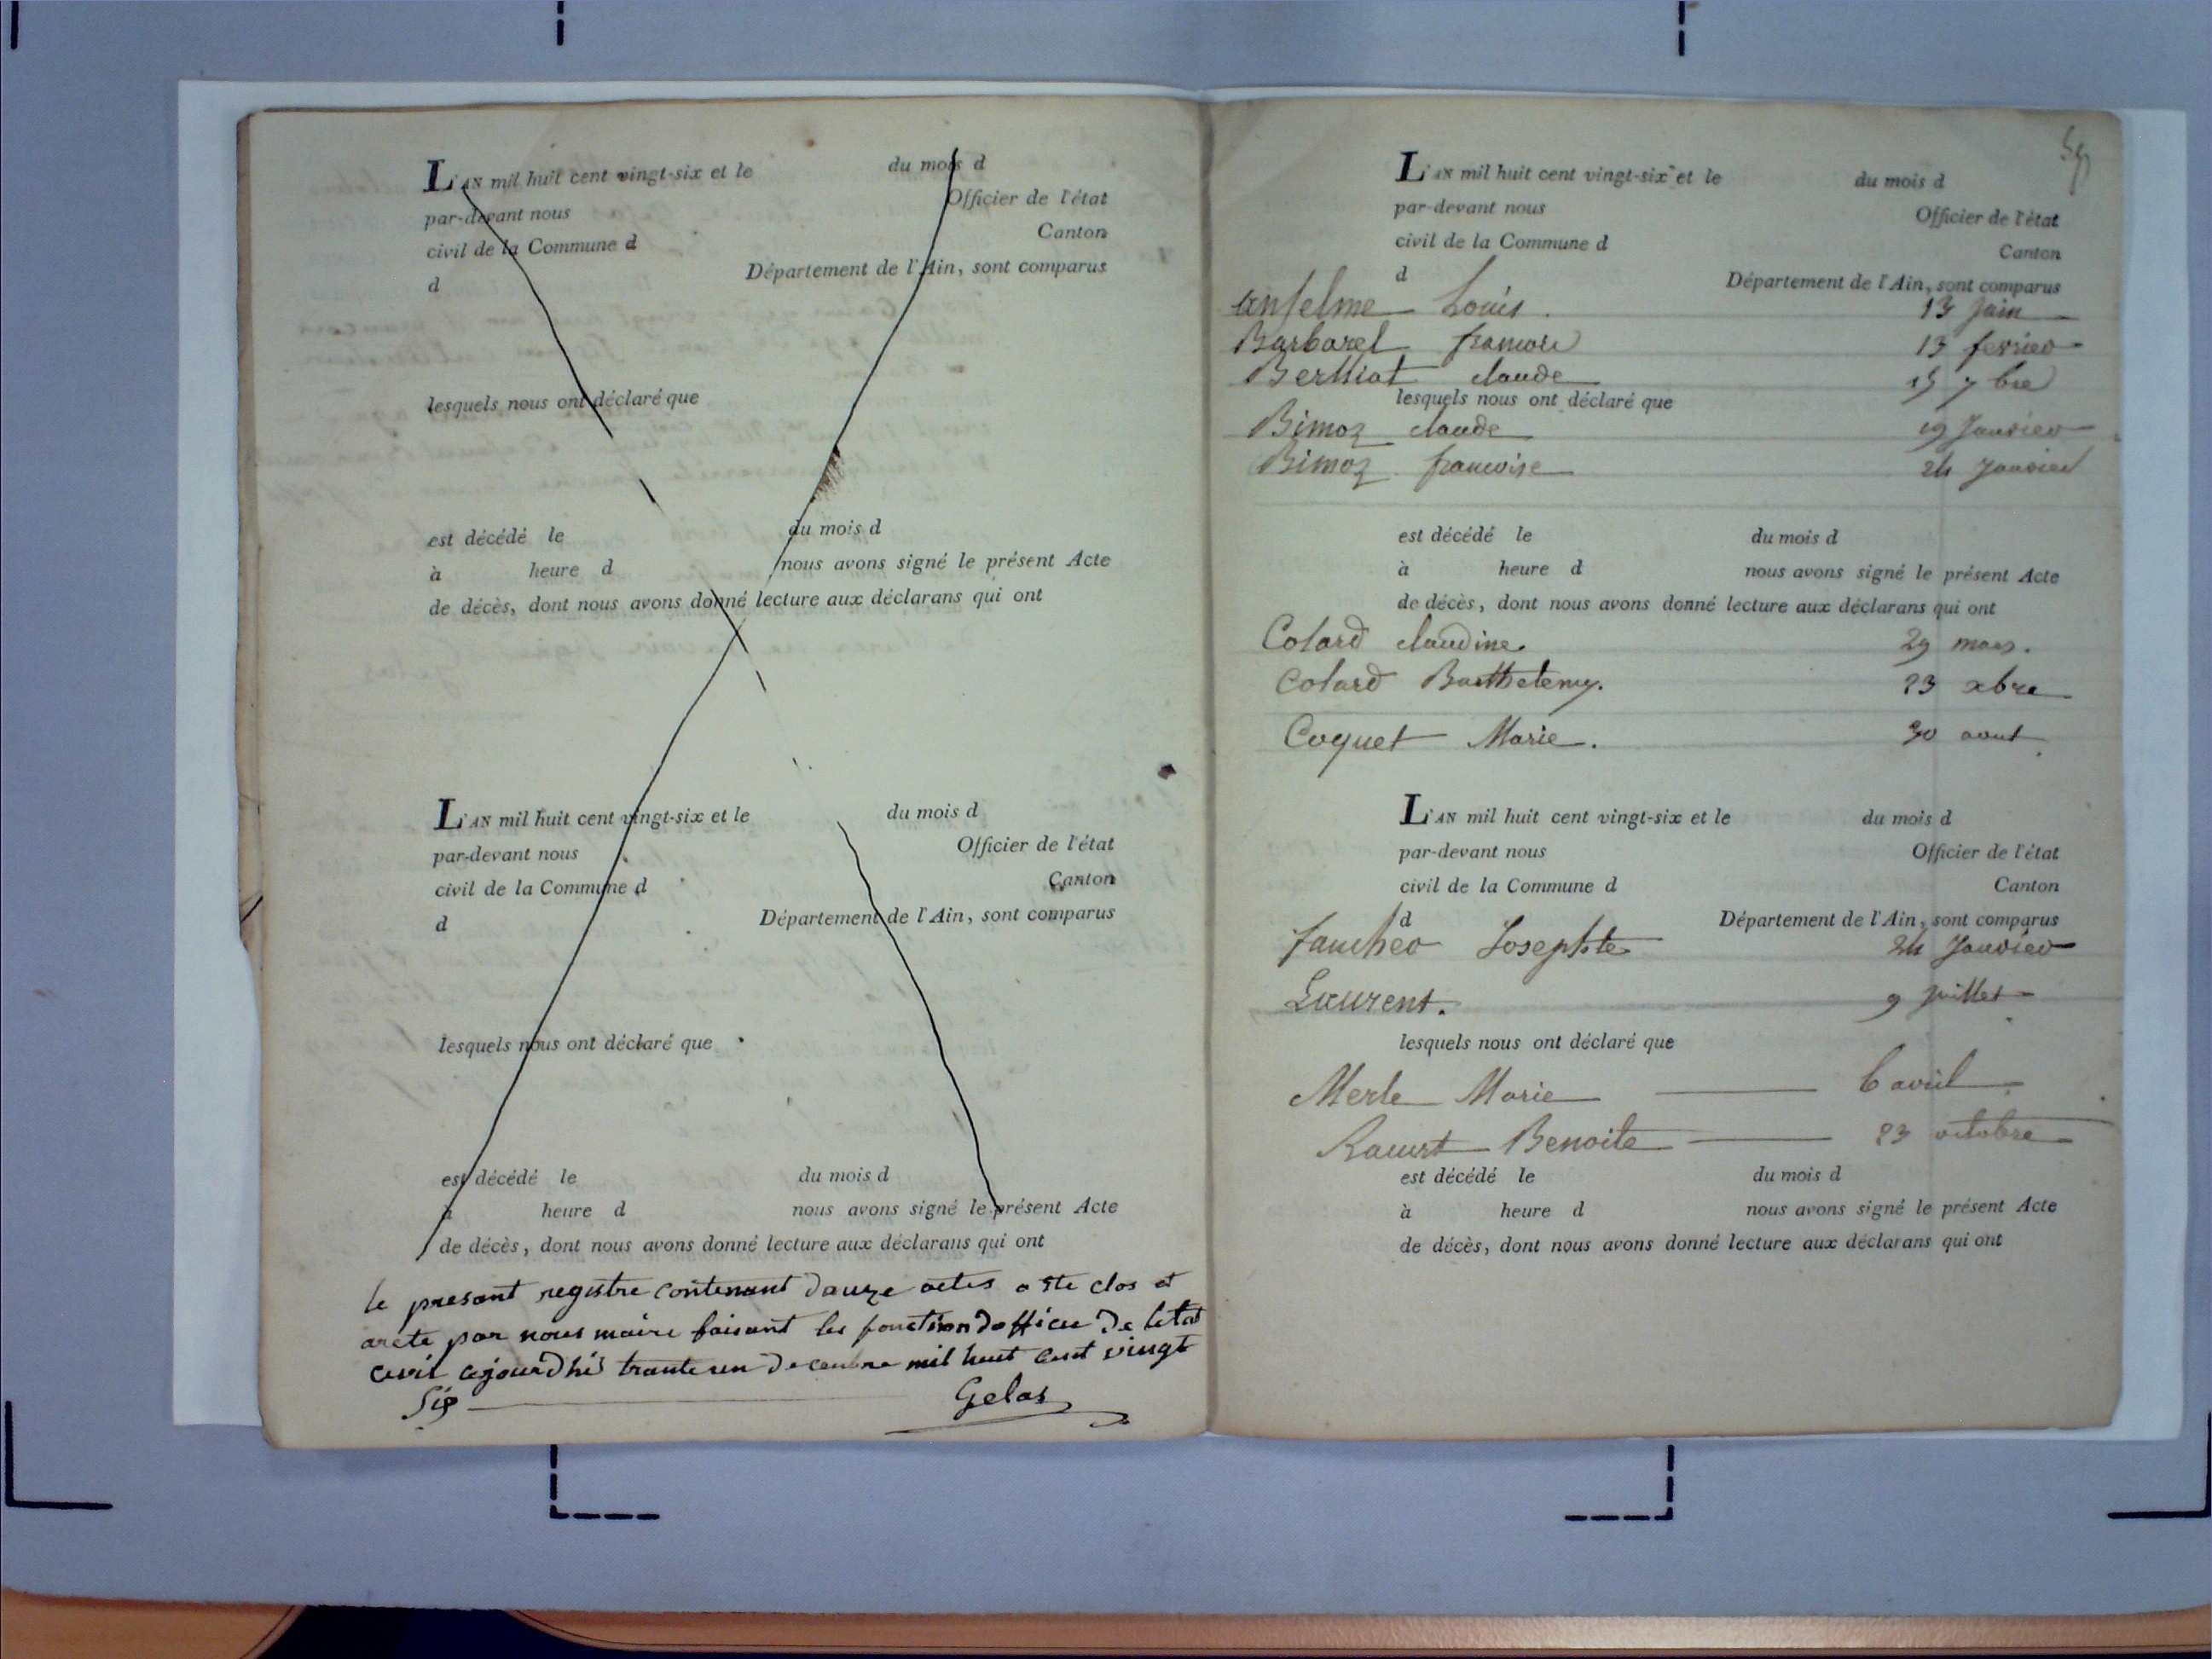 L'AN mil huit cent vingt-six et le du mois d
par-devant nous Officier de l'état
civil de la Commune d Canton
d Département de l'Ain, sont comparus
lesquels nous ont déclaré que
est décédé le du mois d
à heure d nous avons signé le présent Acte
de décès, dont nous avons donné lecture aux déclarans qui ont
L'AN mil huit cent vingt-six et le du mois d
par-devant nous Officier de l'état
civil de la Commune d Canton
d Département de l'Ain, sont comparus
lesquels nous ont déclaré que
est décédé le du mois d
à heure d nous avons signé le présent Acte
de décès, dont nous avons donné lecture aux déclarans qui ont
le present registre contenant dauze actes a ete clos et
arete par nous maire faisant les fonction dofficie de letat
civil cejourdhi trante un decembre mil huit cent vingt
Sis Gelas
L'AN mil huit cent vingt-six et le du mois d
par-devant nous Officier de l'état
civil de la Commune d Canton
d Département de l'Ain, sont comparus
anselme Louis. 13 juin
Barbarel francois 13 fevrier
Berthiat claude 15 7bre
lesquels nous ont déclaré que
Bimoz claude 19 Janvier
Bimoz francoise 24 Janvier
est décédé le du mois d
à heure d nous avons signé le présent Acte
de décès, dont nous avons donné lecture aux déclarans qui ont
Colard claudine. 29 mars.
Colard Barthelemy. 23 xbre
Coquet Marie. 30 aout
L'AN mil huit cent vingt-six et le du mois d
par-devant nous Officier de l'état
civil de la Commune d Canton
d Département de l'Ain, sont comparus
faucher Josephte 24 Janvier
Laurent. 9 juillet
lesquels nous ont déclaré que
Merle Marie 6 avril
Benoite 23 octobre
est décédé le du mois d
à heure d nous avons signé le présent Acte
de décès, dont nous avons donné lecture aux déclarans qui ont